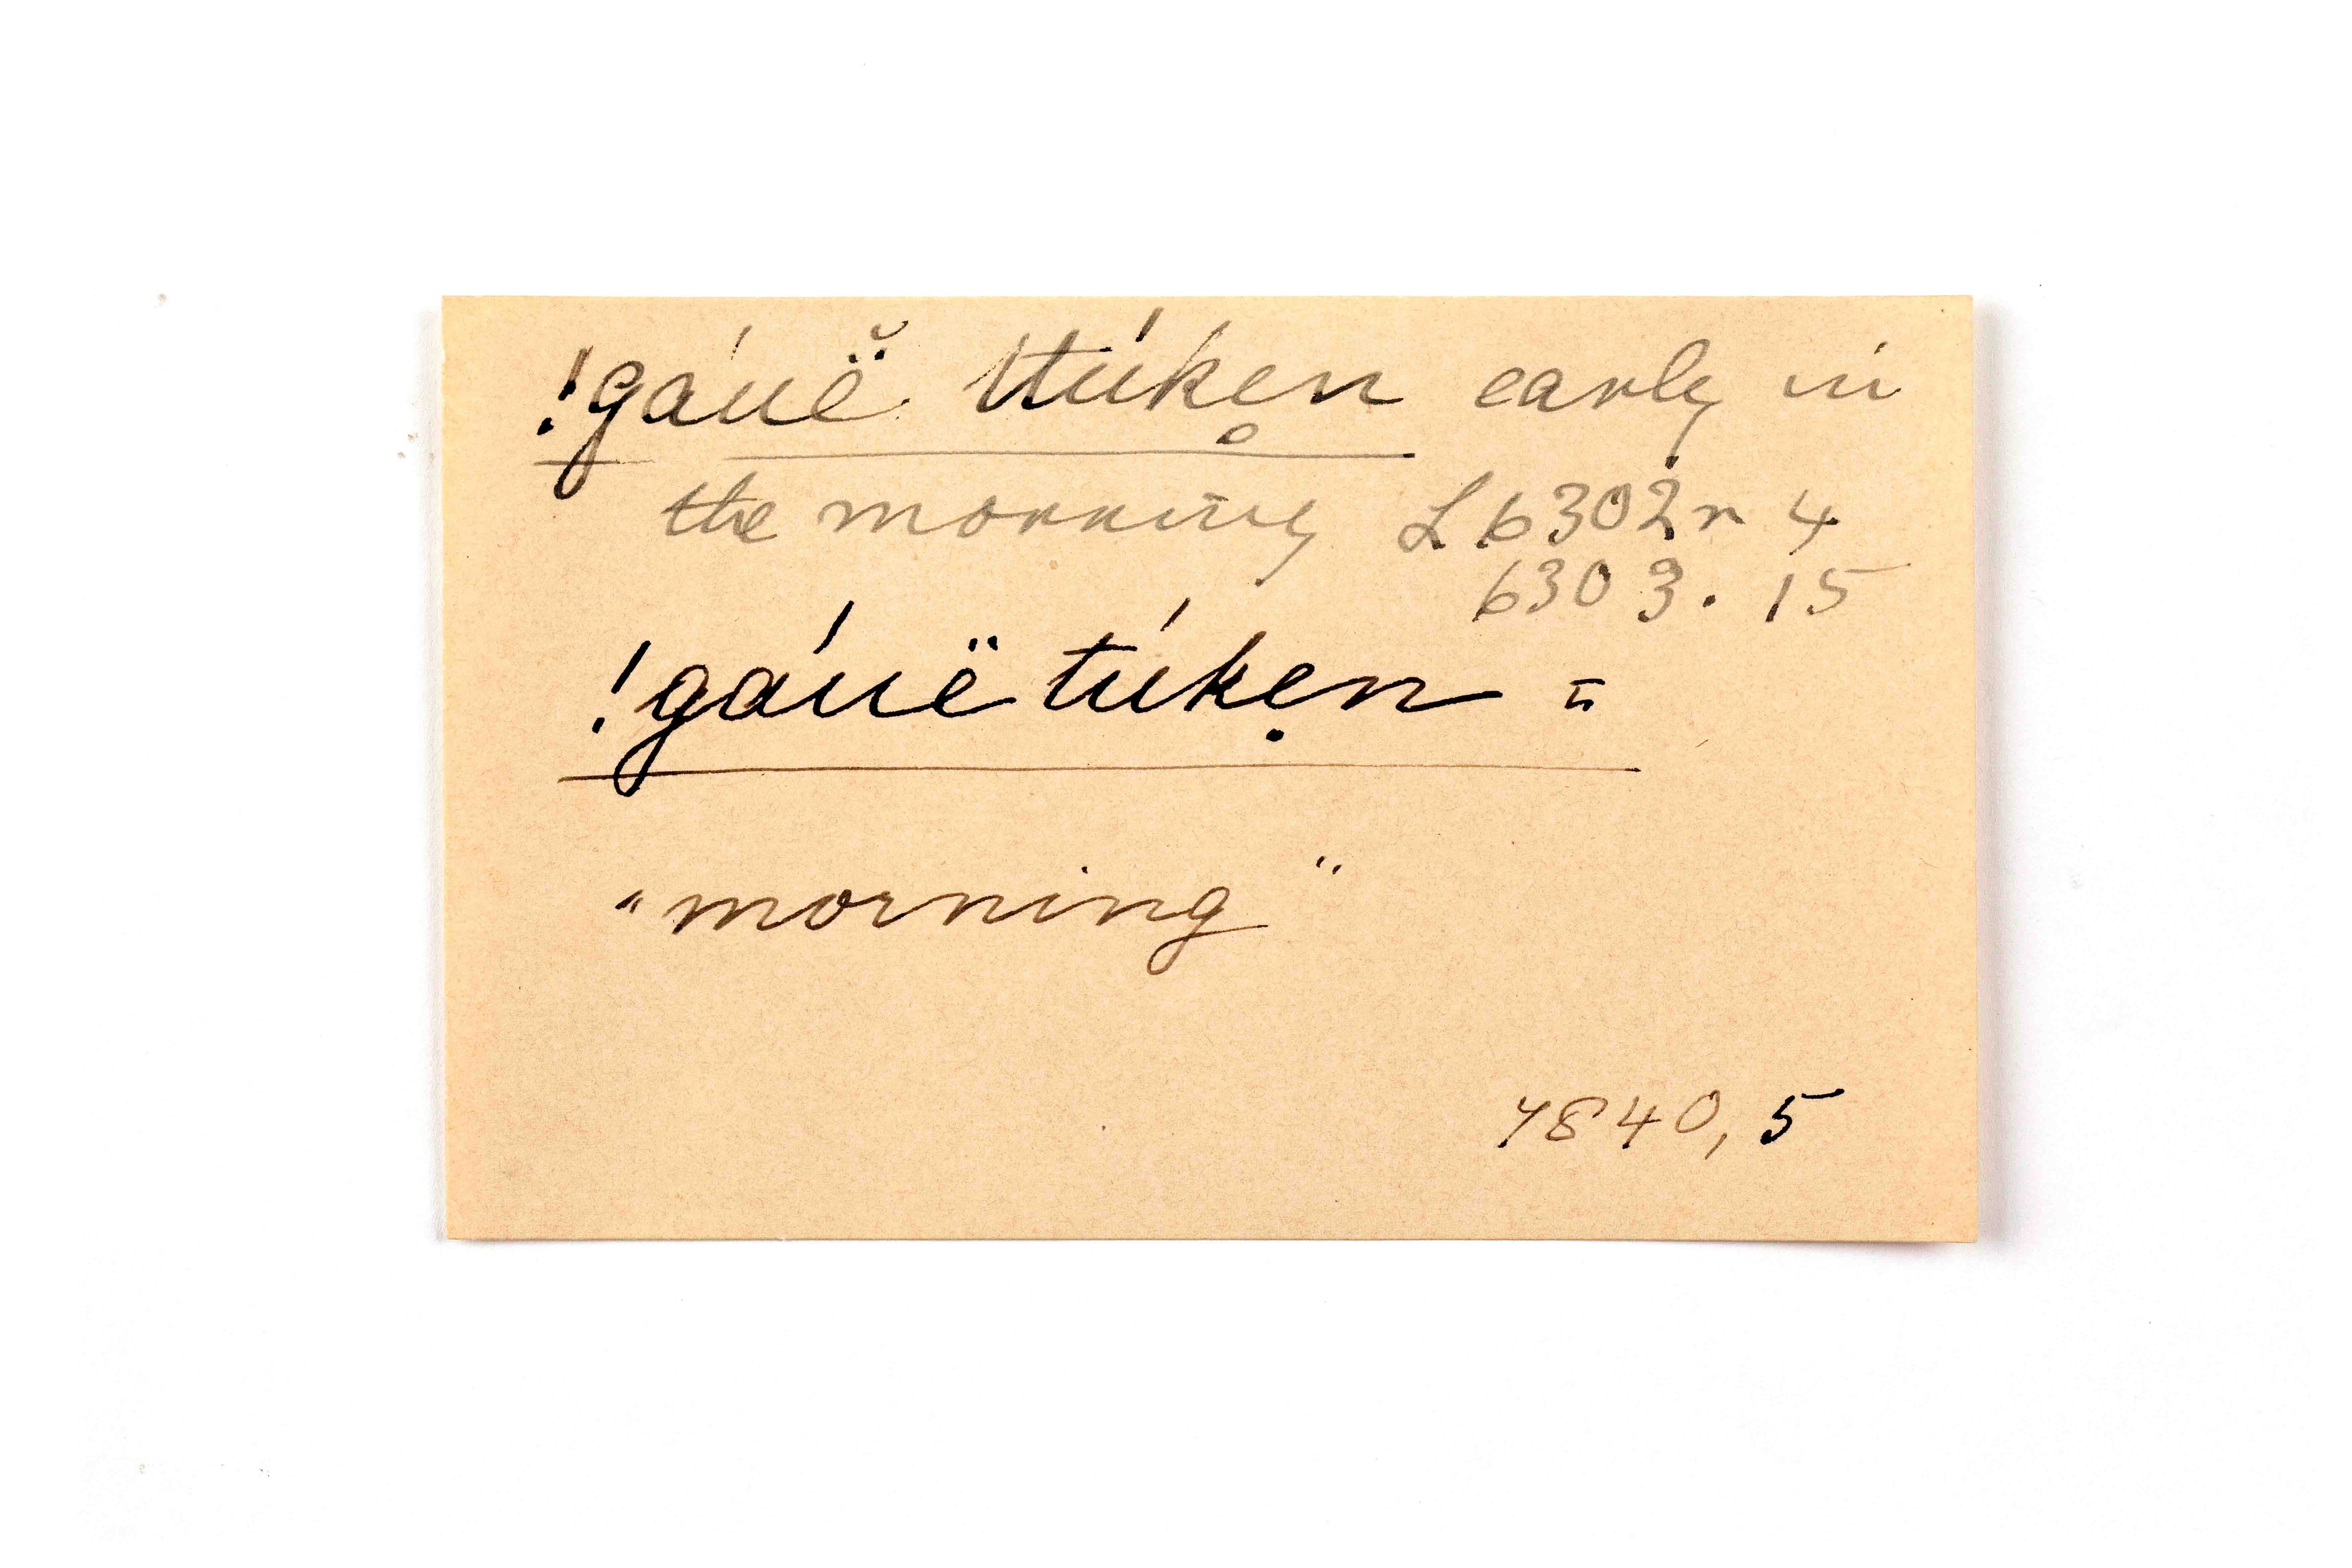 !gáuë̆ ttúken̥ early in
the morning L 6302 r 4
6303. 15
!gáuëtúkẹn =
"morning"
7840, 5